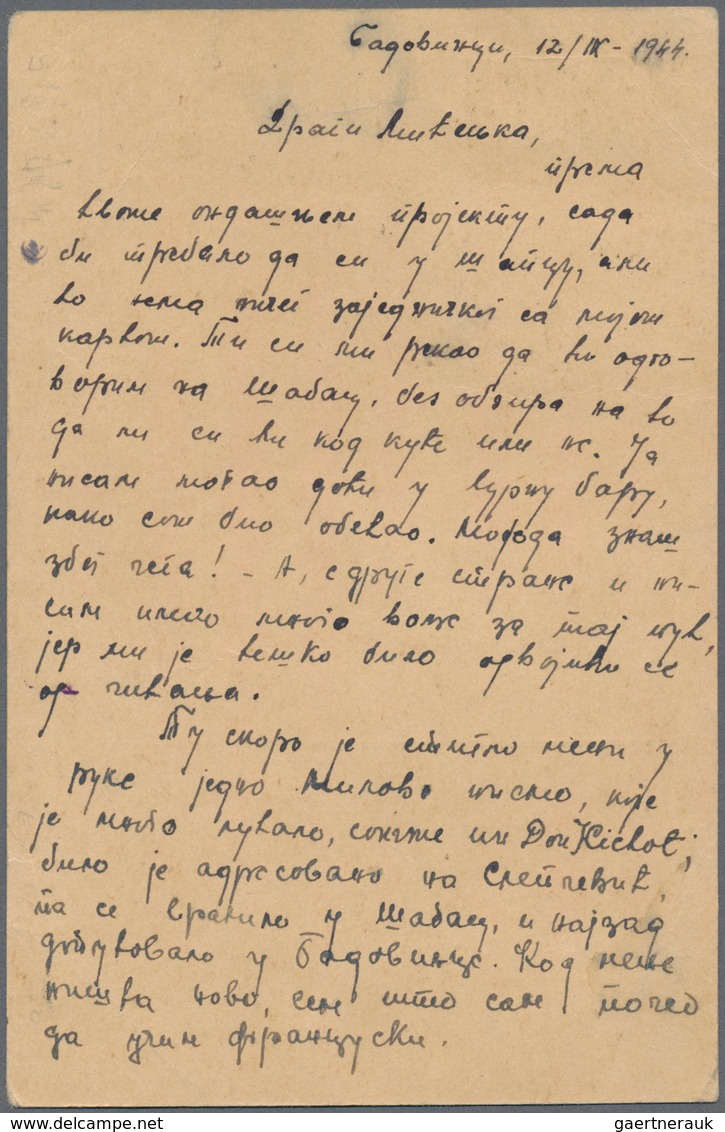 Бадовинци, 12/IX - 1944.
Драги
према
ондашњем пројекту, сада
би требало да си у Шапцу, али
во нема ничег заједничког са мојом
картом. Ти си ми рекао да ти одго-
ворим на Шабац, без обзира на то
да ли си ти код куће или не. Ја
нисам могао доћи у Бару,
како сам био обећао. Можда знаш
због чега! - А, с друге стране и ни-
сам имао много воље за тај пут,
јер ми је тешко било одвојити се
од читања.
Ту скоро је стигло мени у
руке једно Милово писмо, које
је много лутало, слично Don Kichot;
било је адресовано на Слепчевић,
па се вратило у Шабац, и најзад
допутовало у Бадовинце. Код мене
ништа ново, сем што сам почео
да учим француски.
gaertnerauk